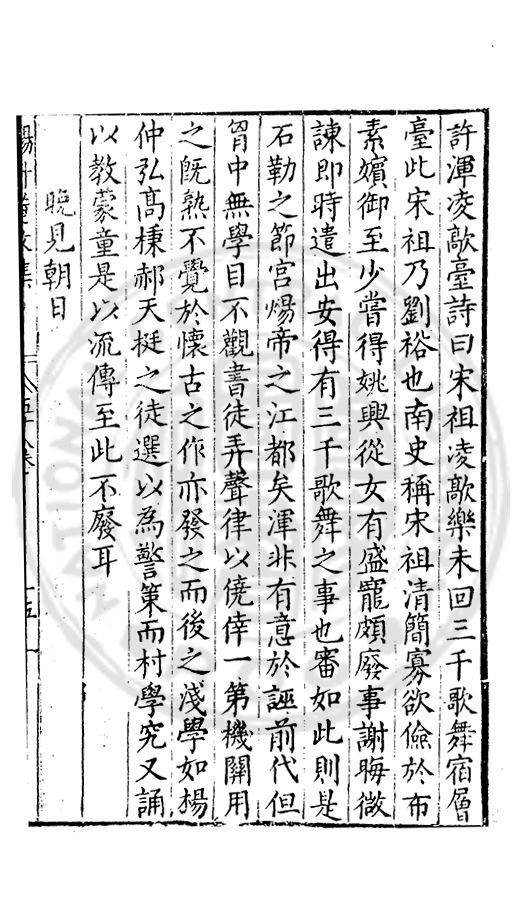 許渾凌歊臺詩曰宋祖凌歊樂未回三千歌舞宿層
臺此宋祖乃劉裕也南史稱宋祖清簡寡欲儉於布
素嬪御至少嘗得姚興從女有盛寵頗廢事謝晦微
諫即時遣出安得有三千歌舞之事也審如此則是
石勒之節宮煬帝之江都矣渾非有意於誣前代但
胷中無學目不觀書徒弄聲律以僥倖一第機關用
之旣熟不覺於懷古之作亦發之而後之淺學如楊
仲弘高棅郝天挺之徒選以為警策而村學究又誦
以教蒙童是以流傳至此不廢耳
晚見朝日